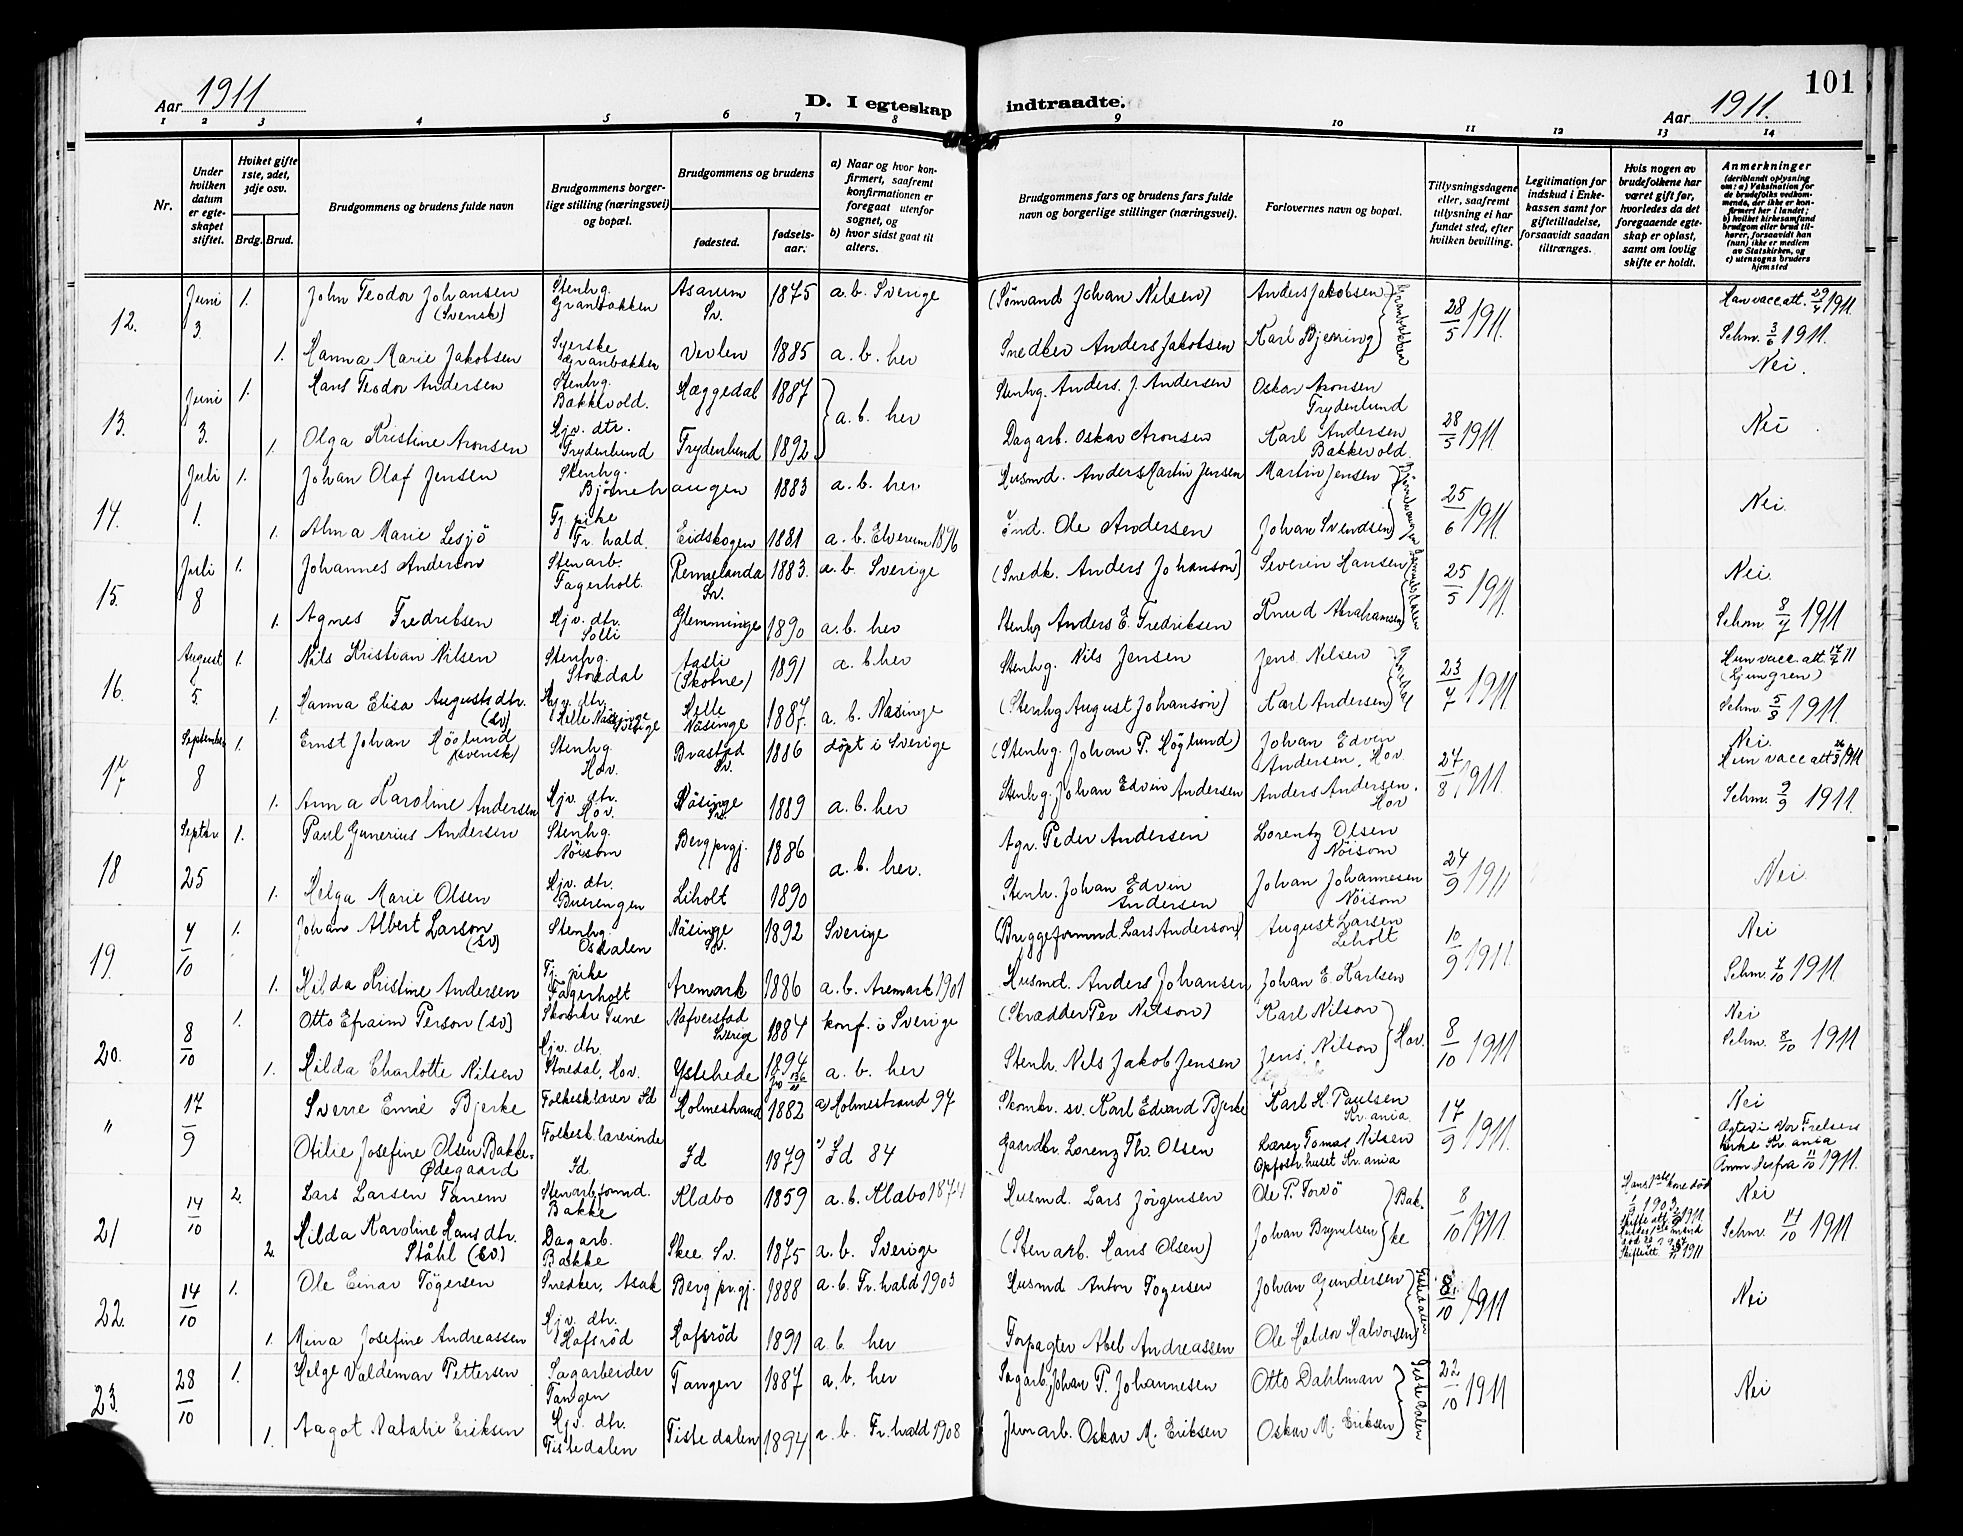 101
Aar 1911
D. I egteskap indtraadte.
Aar 1911.
1 2 3 4 5 6 7 8 9 10 11 12 13 14
Nr.
Under hvilken datum er egteskapet stiftet.
Hvilket gifte 1ste, 2det, 3dje osv.
Brdg. Brud.
Brudgommens og brudens fulde navn
Brudgommens borgerlige stilling (næringsvei) og bopæl.
Brudgommens og brudens
fødested.
fødselsaar.
a) Naar og hvor konfirmert, saafremt konfirmationen er foregaat utenfor sognet, og
b) hvor sidst gaat til alters.
Brudgommens fars og brudens fars fulde navn og borgerlige stillinger (næringsvei).
Forlovernes navn og bopæl.
Tillysningsdagene eller, saafremt tillysning ei har fundet sted, efter hvilken bevilling.
Legitimation for indskud i Enkekassen samt for giftetilladelse, forsaavidt saadan tiltrænges.
Hvis nogen av brudefolkene har været gift før, hvorledes da det foregaaende egteskap er opløst, samt om lovlig skifte er holdt.
Anmerkninger
(deriblandt oplysning om: a) Vaksination for de brudefolks vedkommende, der ikke er konfirmert her i landet; b) hvilket kirkesamfund brudgom eller brud tilhører, forsaavidt han (hun) ikke er medlem av Statskirken, og c) utensogns bruders hjemsted
12. Juni 3. 1. John Teodor Johansen (Svensk) Stenhg. Granbakken Asarum Sv. 1875 a. b. Sverige (Sømand Johan Nilsen) Anders Jakobsen Granbakken 28/5 1911. Han vacc. att. 29/4 1911.
1. Hanna Marie Jakobsen Syerske Granbakken Verlen 1885 a. b. her Snedker Anders Jakobsen Karl Bjerring Schm. 3/6 1911. Nei.
13. Juni 3. 1. Hans Teodor Andersen Stenhg. Bakkevold. Hæggedal 1887 a. b. her Stenhg. Anders. J. Andersen Oskar Aronsen Frydenlund 28/5 1911. Nei
1. Olga Kristine Aronsen Hjv. dtr. Frydenlund Frydenlund 1892 Dagarb. Oskar Aronsen Karl Andersen Bakkevold.
14. Juli 1. 1. Johan Olaf Jensen Stenhg. Bjørnehaugen 1883 a. b. her Husmd. Anders Martin Jensen Martin Jensen Bjørnehaugen 25/6 1911. Nei.
1. Alma Marie Lesjö Tj pike Fr. hald. Eidskogen 1881 a. b. Elverum 1896 Ind. Ole Andersen Johan Svendsen
15. Juli 8 1. Johannes Anderson Stenarb. Fagerholt. Rennelanda Sv. 1883. a. b. Sverige (Snedk. Anders Johanson) Severin Hansen 25/5 1911. Nei.
1. Agnes Fredriksen Hjv. dtr. Solli Glemminge 1890 a. b. her Stenhg Anders E. Fredriksen Knud Abrahamsen Schm 8/7 1911
16. August 5. 1. Nils Kristian Nilsen Stenhg. Stordal Aasli (Skotne) 1891 a. b her Stenhg. Nils Jensen Jens Nilsen Stordal 23/7 1911 Hun vacc. att. 17/7 11 (Ljungren)
1. Hanna Elisa Augustsdtr. (sv) Hjv. dtr. Helle Näsinge Sverige Helle Näsinge 1887 a. b. Näsinge (Stenhg August Johanson) Karl Andersen Schm. 5/8 1911.
17 September 8 1. Ernst Johan Höglund (svensk) Stenhg. Hov. Brastad Sv. 1886 döpt i Sverige (Stenhg. Johan P. Höglund) Johan Edvin Andersen, Hov 27/8 1911. Nei. Hun vacc att 1911
1. Anna Karoline Andersen Hjv. dtr. Hov. Näsinge Sv. 1889 a. b. her Stenhg. Johan Edvin Andersen Anders Andersen. Hov Schm. 9/9 1911.
18 Septbr. 25 1. Paul Gunerius Andersen Stenhg. Nöisom Berg prgj. 1886 a. b. her. Agr. Peder Andersen Lorentz Olsen Nöisom 24/9 1911 Nei.
1. Helga Marie Olsen Hjv. dtr. Buerengen Liholt 1890 Stenh. Johan Edvin Andersen Johan Johannesen Nöisom
19. 7/10 1. Johan Albert Larson (sv) Stenhg. Osdalen Näsinge Sv. 1892 Sverige (Bryggeformnd. Lars Anderson) August Larsen Liholt 10/9 1911 Nei
1. Hilda Kristine Andersen Tj. pike Fagerholt Aremark 1886 a. b. Aremark 1901 Husmd. Anders Johansen Johan E. Karlsen Schm. 7/10 1911
20. 8/10 1. Otto Efraim Person (sv) Skomkr Tune Nafverstad Sverige 1884 konf. i Sverige (Skrædder Per Nilson) Karl Nilson Hov. 8/10 1911 Nei
1. Hilda Charlotte Nilsen Hjv. dtr. Stordal, Hov. Ystehede 1894 a. b. her Stenh. Nils Jakob Jensen Jens Nilson Schm. 8/10 1911
" 17/9 Sverre Emil Bjerke Folkesklærer Id Holmestrand 1882 a) Holmestrand 97 Skomkr. sv. Karl Edvard Bjerke Karl H. Paulsen Kr.ania 17/9 1911. Nei
Otilie Josefine Olsen Bakke-Ødegaard Folkesk. lærerinde Id. Id 1879 Id 84 Gaardbr. Lorenz Th. Olsen Lærer Tomas Nilsen Opfostr. huset Kr.ania Egtevi i Vor Frelsers kirke Kr.ania Anm. derfra 11/10 1911.
21 14/10 2. Lars Larsen Tanem Stenarb.formd. Bakke Klæbo 1859 a. b. Klæbo 1874 Husmd. Lars Jörgensen Ole P. Torvö Bakke 8/10 1911 Nei
2. Hilda Karoline Hansdtr. Ståhl (sv) Dagarb. Bakke Skee Sv. 1875 a. b. Sverige (Stenarb. Hans Olsen) Johan Brynelsen Schm. 14/10 1911
22. 14/10 1. Ole Einar Tögersen Snedker, Asak Berg prgj. 1888 a. b. Fr. hald 1903 Husmd Anton Togersen Johan Gundersen Tistedalen 8/10 1911 Nei
1. Mina Josefine Andreassen Hjv. dtr. Hofsröd Hofsröd 1891 a. b. her Forpagter Abel Andreassen Ole Haldor Halvorsen
23. 28/10 1. Helge Valdemar Pettersen Sagarbeider Tangen Tangen 1887 a. b. her Sagarb. Johan P. Johannesen Otto Dahlman Tistedalen 22/10 1911 Nei
1. Aagot Natalie Eriksen Hjv. dtr. Tistedalen Tistedalen 1894 a. b. Fr. hald 1908 Jernarb. Oskar M. Eriksen Oskar M. Eriksen